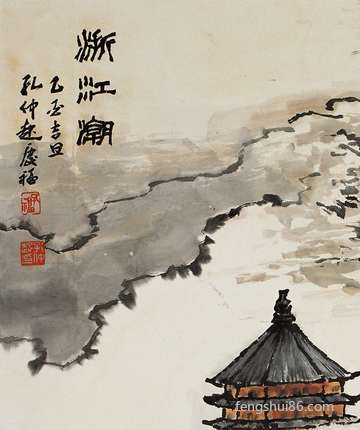 浙江潮
乙亥吉旦
孔仲起慶福
fengshui86.com